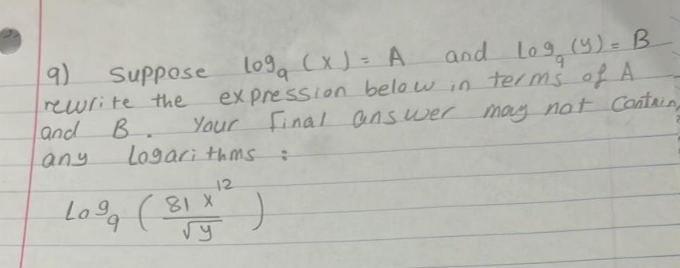 9) Suppose log₉(x) = A and Log₉(y) = B
rewrite the expression below in terms of A
and B. Your final answer may not contain
any Logarithms :
Log₉ ( 81 x¹² / √y )